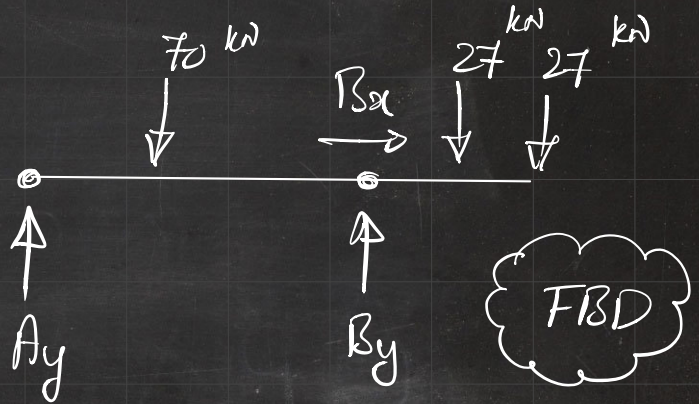 70 kN
Bx
27 kN
27 kN
Ay
By
FBD